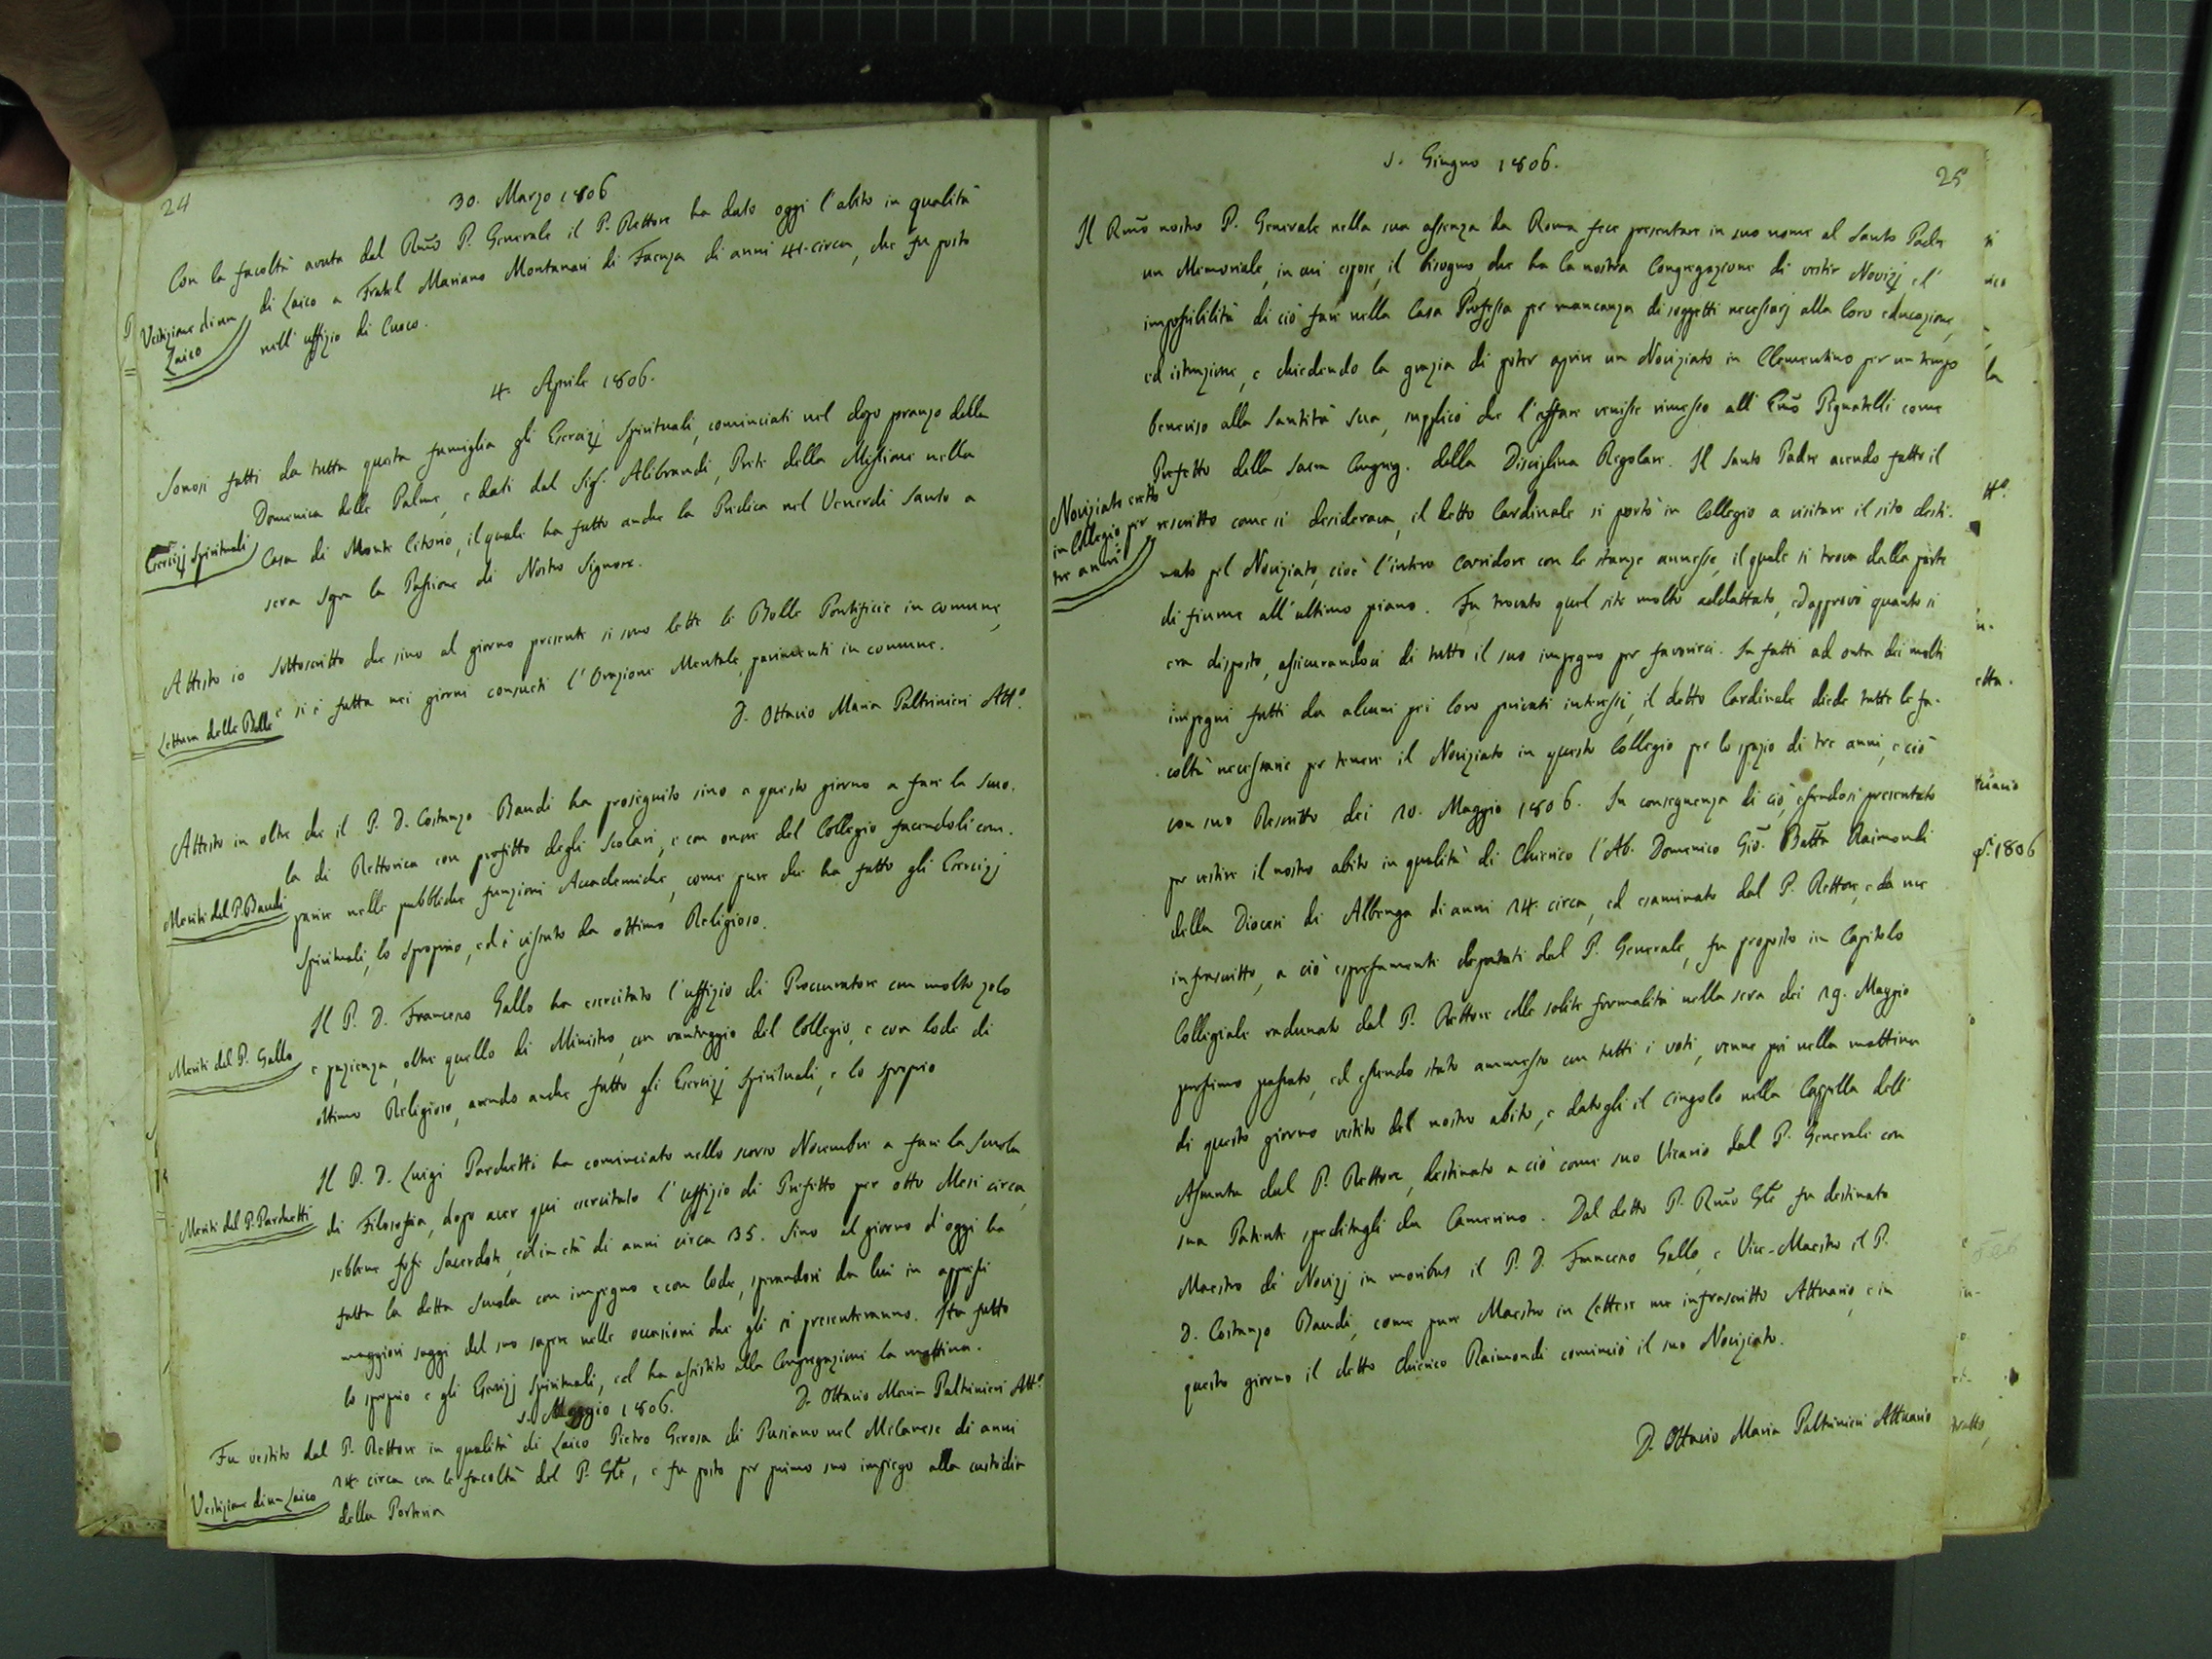 24
30. Marzo 1806
Con la facoltà avuta dal Rmo P. Generale il P. Rettore ha dato oggi l'abito in qualità
Vestizione di un Laico
di Laico a Fratel Mariano Montanari di Faenza di anni 41. circa, che fu posto
nell'uffizio di Cuoco.
4. Aprile 1806.
Sonosi fatti da tutta questa famiglia gli Esercizj Spirituali, cominciati nel dopo pranzo della
Domenica delle Palme, e dati dal Sig. Alibrandi, Prete della Missione nella
Esercizj Spirituali
Casa di Monte Citorio, il quale ha fatto anche la Predica nel Venerdì Santo a
sera sopra la Passione di Nostro Signore.
Attesto io sottoscritto che sino al giorno presente si sono lette le Bolle Pontificie in comune,
Lettura delle Bolle
e si è fatta nei giorni consueti l'Orazione Mentale, parimenti in comune.
D. Ottavio Maria Paltrinieri Atto.
Attesto in oltre che il P. D. Costanzo Baudi ha proseguito sino a questo giorno a fare la Scuo-
la di Rettorica con profitto degli Scolari, e con onore del Collegio facendoli com-
Meriti del P. Baudi
parire nelle pubbliche funzioni Accademiche, come pure che ha fatto gli Esercizj
Spirituali, lo sproprio, ed è vissuto da ottimo Religioso.
Il P. D. Francesco Gallo ha esercitato l'uffizio di Proccuratore con molto zelo
Meriti del P. Gallo
e pazienza, oltre quello di Ministro, con vantaggio del Collegio, e con lode di
ottimo Religioso, avendo anche fatto gli Esercizj Spirituali, e lo sproprio
Il P. D. Luigi Parchetti ha cominciato nello scorso Novembre a fare la Scuola
Meriti del P. Parchetti
di Filosofia, dopo aver qui esercitato l'uffizio di Prefetto per otto Mesi circa,
sebbene fosse Sacerdote, ed in età di anni circa 35. Sino al giorno d'oggi ha
fatta la detta Scuola con impegno e con lode, sperandosi da lui in appresso
maggiori saggi del suo sapere nelle occasioni che gli si presenteranno. Ha fatto
lo sproprio e gli Esercizj Spirituali, ed ha assistito alla Congregazione la mattina.
D. Ottavio Maria Paltrinieri Atto.
1. Maggio 1806.
Fu vestito dal P. Rettore in qualità di Laico Pietro Gerosa di Pusiano nel Milanese di anni
Vestizione di un Laico
24. circa con le facoltà del P. Gle, e fu posto per primo suo impiego alla custodia
della Porteria
25
1. Giugno 1806.
Il Rmo nostro P. Generale nella sua assenza da Roma fece presentare in suo nome al Santo Padre
un Memoriale, in cui espose il bisogno, che ha la nostra Congregazione di vestir Novizj e l'
impossibilità di ciò fare nella Casa Professa per mancanza di soggetti necessarj alla loro educazione,
ed istruzione, e chiedendo la grazia di poter aprire un Noviziato in Clementino per un tempo
beneviso alla Santità Sua, supplicò che l'affare venisse rimesso all'Emo Pignatelli come
Prefetto della Sacra Congreg. della Disciplina Regolare. Il Santo Padre avendo fatto il
Noviziato eretto in Collegio per tre anni
rescritto come si desiderava, il detto Cardinale si portò in Collegio a visitare il sito desti-
nato pel Noviziato, cioè l'intero Corridore con le stanze annesse, il quale si trova dalla parte
di fiume all'ultimo piano. Fu trovato quel sito molto addattato, ed approvò quanto si
era disposto, assicurandoci di tutto il suo impegno per favorirci. In fatti ad onta dei molti
impegni fatti da alcuni pei loro privati interessi, il detto Cardinale diede tutte le fa-
coltà necessarie per tenere il Noviziato in questo Collegio per lo spazio di tre anni, e ciò
con suo Rescritto dei 20. Maggio 1806. In conseguenza di ciò, essendosi presentato
per vestire il nostro abito in qualità di Chierico l'Ab. Domenico Gio. Batta Raimondi
della Diocesi di Albenga di anni 24. circa, ed esaminato dal P. Rettore, e da me
infrascritto, a ciò espressamente deputati dal P. Generale, fu proposto in Capitolo
Collegiale radunato dal P. Rettore colle solite formalità nella sera dei 29. Maggio
prossimo passato, ed essendo stato ammesso con tutti i voti, venne poi nella mattina
di questo giorno vestito del nostro abito, e datogli il cingolo nella Cappella dell'
Assunta dal P. Rettore, destinato a ciò come suo Vicario dal P. Generale con
sua Patente speditagli da Camerino. Dal detto P. Rmo Gle fu destinato
Maestro de' Novizj in moribus il P. D. Francesco Gallo, e Vice-Maestro il P.
D. Costanzo Baudi, come pure Maestro in Lettere me infrascritto Attuario, e in
questo giorno il detto Chierico Raimondi cominciò il suo Noviziato.
D. Ottavio Maria Paltrinieri Attuario
la
1806